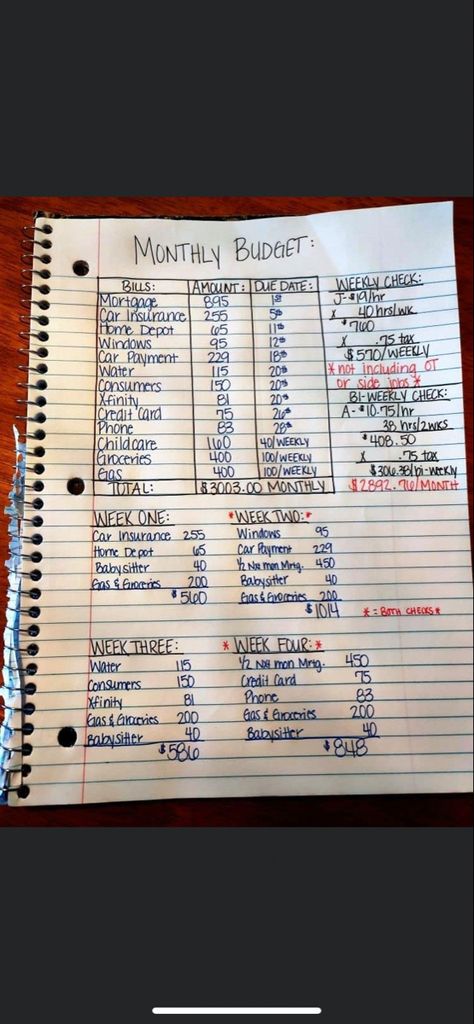 MONTHLY BUDGET:
BILLS: AMOUNT: DUE DATE:
Mortgage 895 1st
Car Insurance 255 5th
Home Depot 65 11th
Windows 95 12th
Car Payment 229 18th
Water 115 20th
Consumers 150 20th
Xfinity 81 20th
Credit Card 75 26th
Phone 83 28th
Childcare 160 40/WEEKLY
Groceries 400 100/WEEKLY
Gas 400 100/WEEKLY
TOTAL: $3003.00 MONTHLY
WEEKLY CHECK:
J-$19/hr
x 40 hrs/wk
$760
x .75 tax
$570/WEEKLY
*not including OT
or side jobs*
BI-WEEKLY CHECK:
A-$10.75/hr
38 hrs/2wks
$408.50
x .75 tax
$306.38/bi-weekly
$2892.76/MONTH
WEEK ONE:
Car Insurance 255
Home Depot 65
Babysitter 40
Gas & Groceries 200
$560
*WEEK TWO:*
Windows 95
Car Payment 229
1/2 Nxt mon Mrtg. 450
Babysitter 40
Gas & Groceries 200
$1014
* = BOTH CHECKS *
WEEK THREE:
Water 115
Consumers 150
Xfinity 81
Gas & Groceries 200
Babysitter 40
$586
* WEEK FOUR: *
1/2 Nxt mon Mrtg. 450
Credit Card 75
Phone 83
Gas & Groceries 200
Babysitter 40
$848